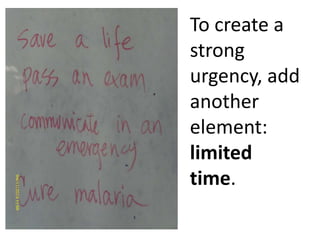 Save a life
pass an exam
communicate in an
emergency
Cure malaria
To create a
strong
urgency, add
another
element:
limited
time.